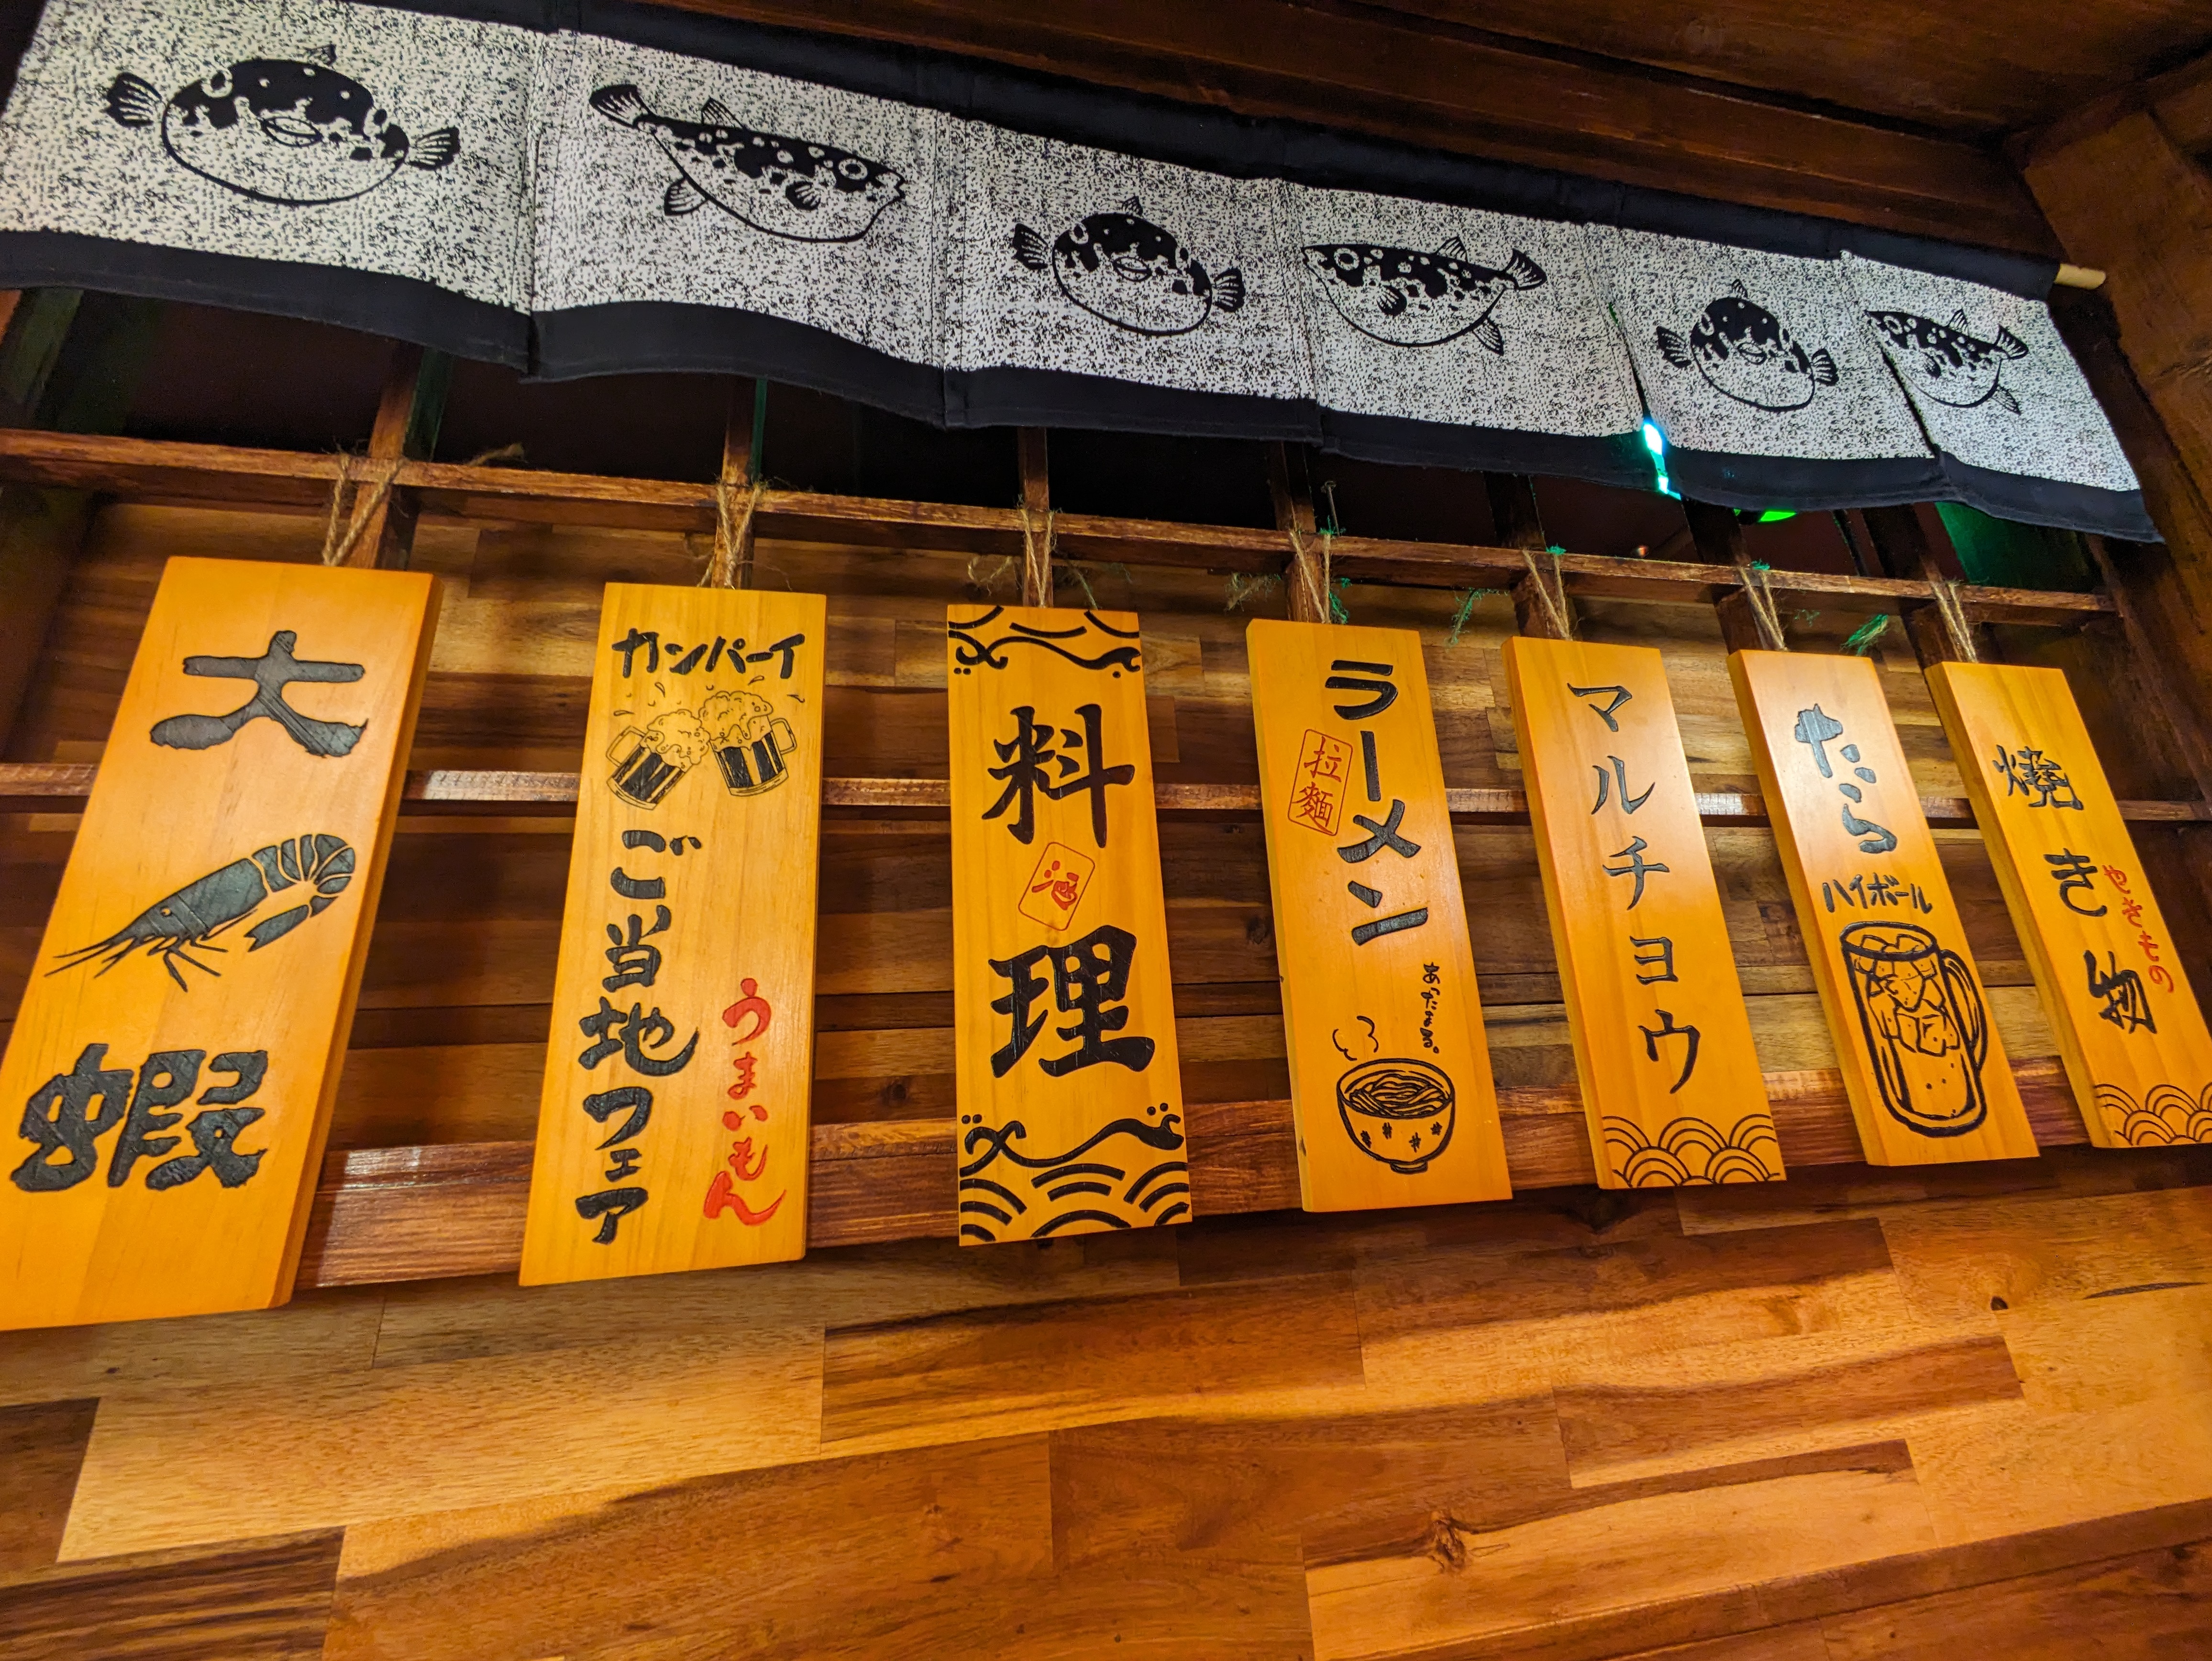 大
蝦
カンパーイ
ご当地フェア
うまいもん
料理
酒
ラーメン
拉麺
あったまる。
マルチョウ
たら
ハイボール
焼き物
やきもの